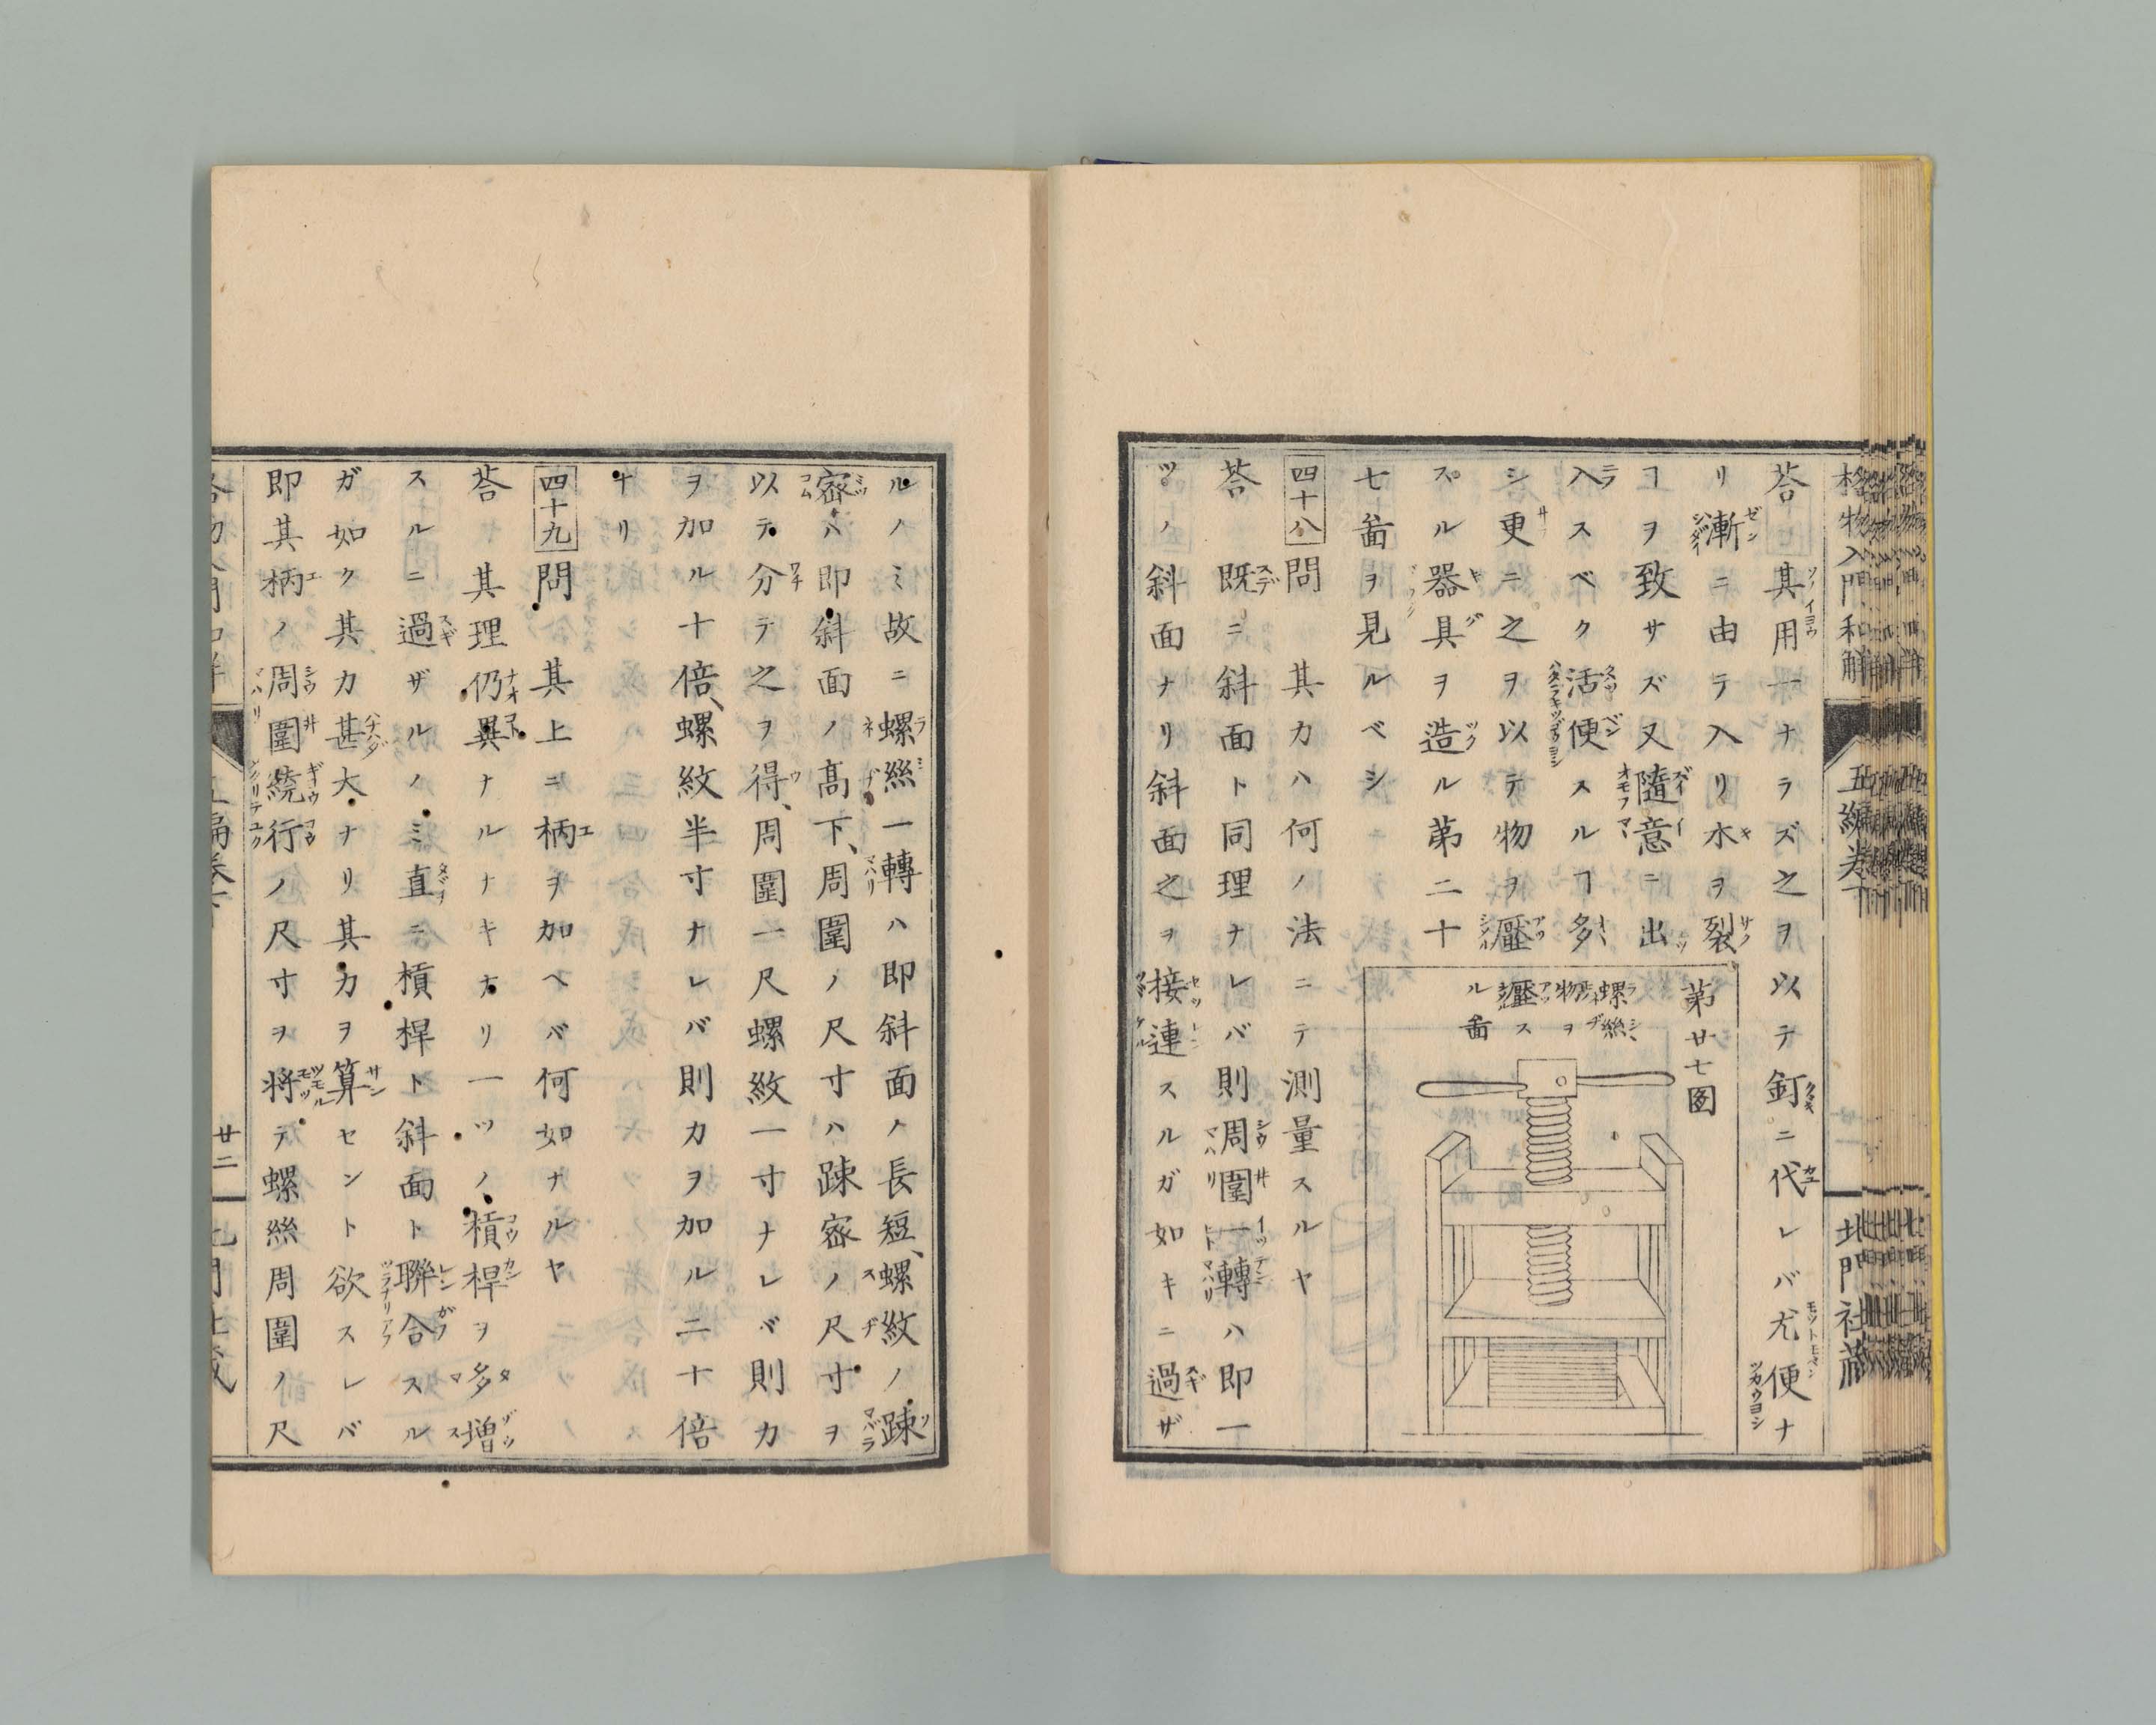 格物入門和解
五編卷下
北門社藏
荅 其用一ナラズ之ヲ以テ釘ニ代レバ尤便ナ
リ漸ニ由テ入リ木ヲ裂
ヿヲ致サズ又隨意ニ出
入スベク活便スルヿ多
シ更ニ之ヲ以テ物ヲ壓
スル器具ヲ造ル苐二十
七啚ヲ見ルベシ
苐廿七圖
螺絲
物ヲ
壓ス
ル啚
四十八問 其力ハ何ノ法ニテ測量スルヤ
荅 既ニ斜面ト同理ナレバ則周圍一轉ハ即一
ツノ斜面ナリ斜面之ヲ接連スルガ如キニ過ザ
ルノミ故ニ螺絲一轉ハ即斜面ノ長短、螺紋ノ踈
宻ハ即斜面ノ髙下、周圍ノ尺寸ハ踈宻ノ尺寸ヲ
以テ分テ之ヲ得、周圍一尺螺紋一寸ナレバ則力
ヲ加ル十倍、螺紋半寸ナレバ則力ヲ加ル二十倍
ナリ
四十九問 其上ニ柄ヲ加ヘバ何如ナルヤ
荅 其理仍異ナルナキナリ一ツノ槓桿ヲ多増
スルニ過ザルノミ直ニ槓桿ト斜面ト聯合スル
ガ如ク其力甚大ナリ其力ヲ算セント欲スレバ
即其柄ノ周圍繞行ノ尺寸ヲ将テ螺絲周圍ノ尺
廿二